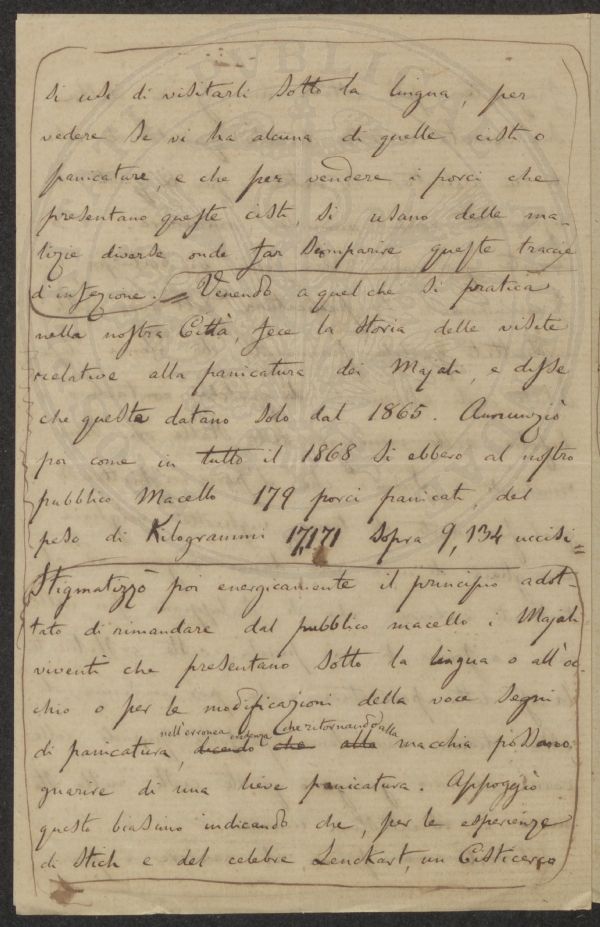 si usi di visitarli sotto la lingua, per
vedere se vi ha alcuna di quelle cisti o
panicature, e che per vendere i porci che
presentano queste cisti, si usano delle ma-
lizie diverse onde far scomparire queste traccie
d'infezione. = Venendo a quel che si pratica
nella nostra Città, fece la storia delle visite
relative alla panicatura dei Majali, e disse
che queste datano solo dal 1865. Annunziò
poi come in tutto il 1868 si ebbero al nostro
pubblico Macello 179 porci panicati, del
peso di Kilogrammi 17,171 sopra 9,134 uccisi =
Stigmatizzò poi energicamente il principio adot-
tato di rimandare dal pubblico macello i Majali
viventi che presentano sotto la lingua o all'oc-
chio o per le modificazioni della voce segni
nell'erronea credenza che ritornando alla
di panicatura, dicendo che alla macchia possano
guarire di una lieve panicatura. Appoggiò
questo biasimo indicando che, per le esperienze
di Stich e del celebre Lenckart, un Cisticerco